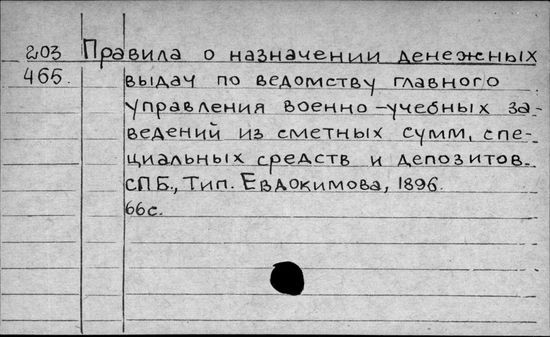 203 Правила о назначении денежных
465. выдач по ведомству главного
управления военно-учебных за-
ведений из сметных сумм, спе-
циальных средств и депозитов.
СПБ., Тип. Евдокимова, 1896.
66с.